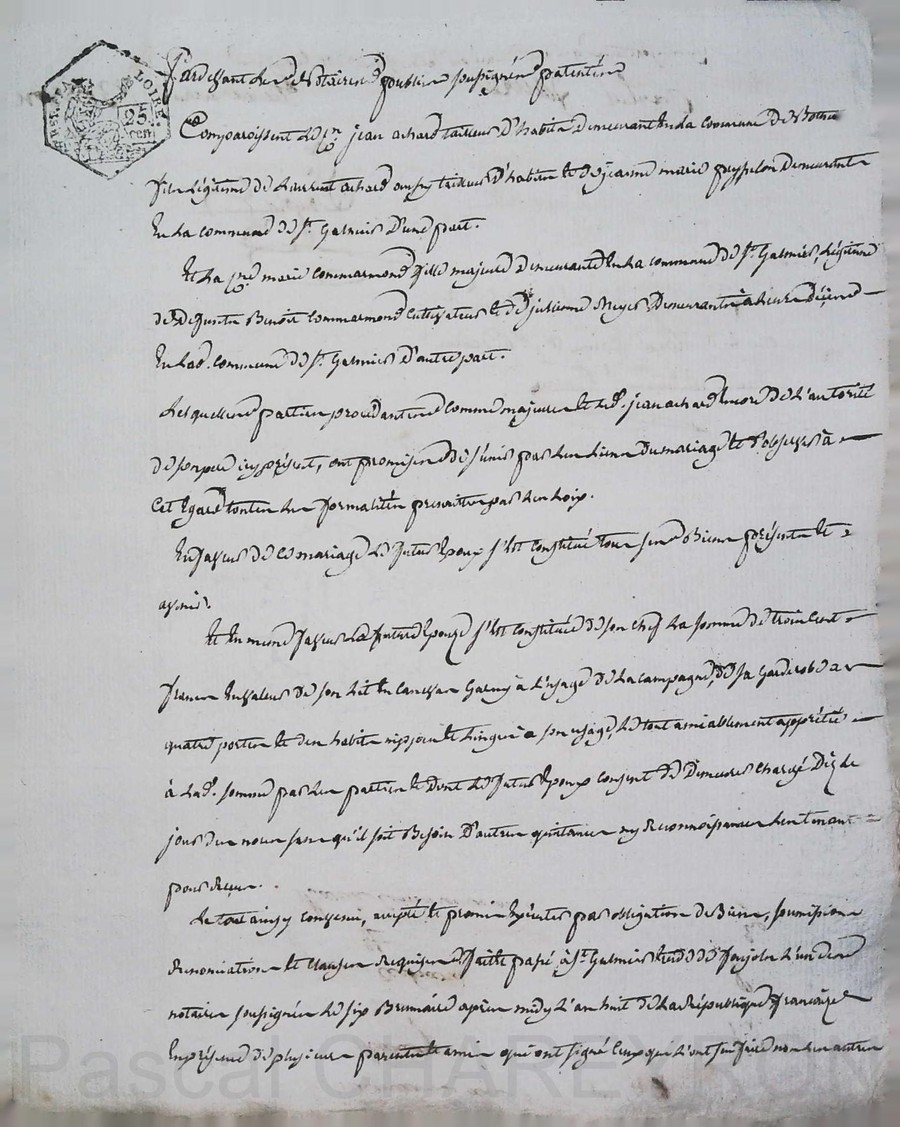 LOIRE
25 cen
Pardevant Les Notaires publics soussignés patentés
Comparoissent Le Cn jean achard tailleur d'habits demeurant En La commune de
fils Légitime de Laurent achard aussy tailleur d'habits Et de jeanne marie demeurants
En La commune de St. Galmier d'une part.
Et La Cne marie Commarmond fille majeure demeurante En La commune de St. Galmier, Légitime
de deffunt Benoit Commarmond Cultivateur Et de julienne demeurante
En Lad. commune de St. Galmier d'autre part.
Lesquelles parties procédantes comme majeures Et led. jean achard de L'autorité
de son père icy présent, ont promis de s'unir par Les Liens du mariage Et d'observer à
Cet Egard toutes Les formalités prescrittes par Les Loix.
En faveur de Ce mariage Le futur Epoux s'est constitué tous ses Biens présents Et
avenir.
Et En meme faveur La future Epouze s'est constituée de son chef La somme de trois Cent
francs En valeur de son Lit En Garny à L'usage de La campagne, de sa Garderobe à
quatre portes Et des habits nipes Et Linges à son usage, Le tout amiablement apprétié
à Lad. somme par Les parties Et dont Le futur Epoux consent de demeurer chargé Dez Le
jour des noces sans qu'il soit Besoin D'autres quittances ny Reconnoissances Les tenant
pour Reçus.
Le tout ainsy convenu, accepté Et promis Exécuter par obligation de Biens, soumissions
Renonciations Et Clauses Requises fait Et passé à St. Galmier Etude de L'un des
notaires soussignés Le six Brumaire après midy L'an huit de La République française
En présence de plusieurs parents Et amis qui ont signé Ceux qui L'ont sçu faire non Les autres
Pascal CHAREYRON